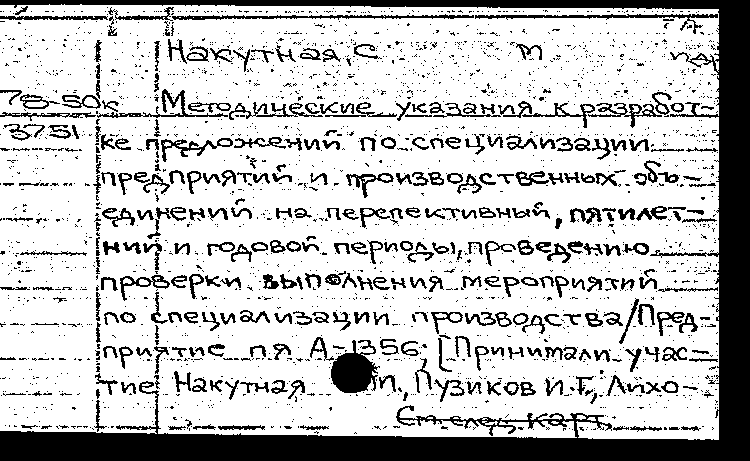 Накутная, С П
78-50к Методические указания к разработ-
3751 ке предложений по специализации
предприятий и производственных объ-
единений на перспективный, пятилет-
ний и годовой периоды, проведению
проверки выполнения мероприятий
по специализации производства/Пред-
приятие п.я А-1356; [Принимали учас-
тие Накутная Пузиков И.Г., Лихо-
См. след. карт.